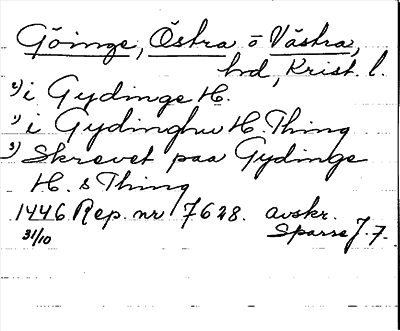 Göinge, Östra o Västra,
hd, Krist. l.
2) i Gydinge H.
1) i Gydinghu H. Thing
3) Skrevet paa Gydinge
H. s Thing
1446 Rep. nr 7628. avskr.
31/10 Sparre J. F.